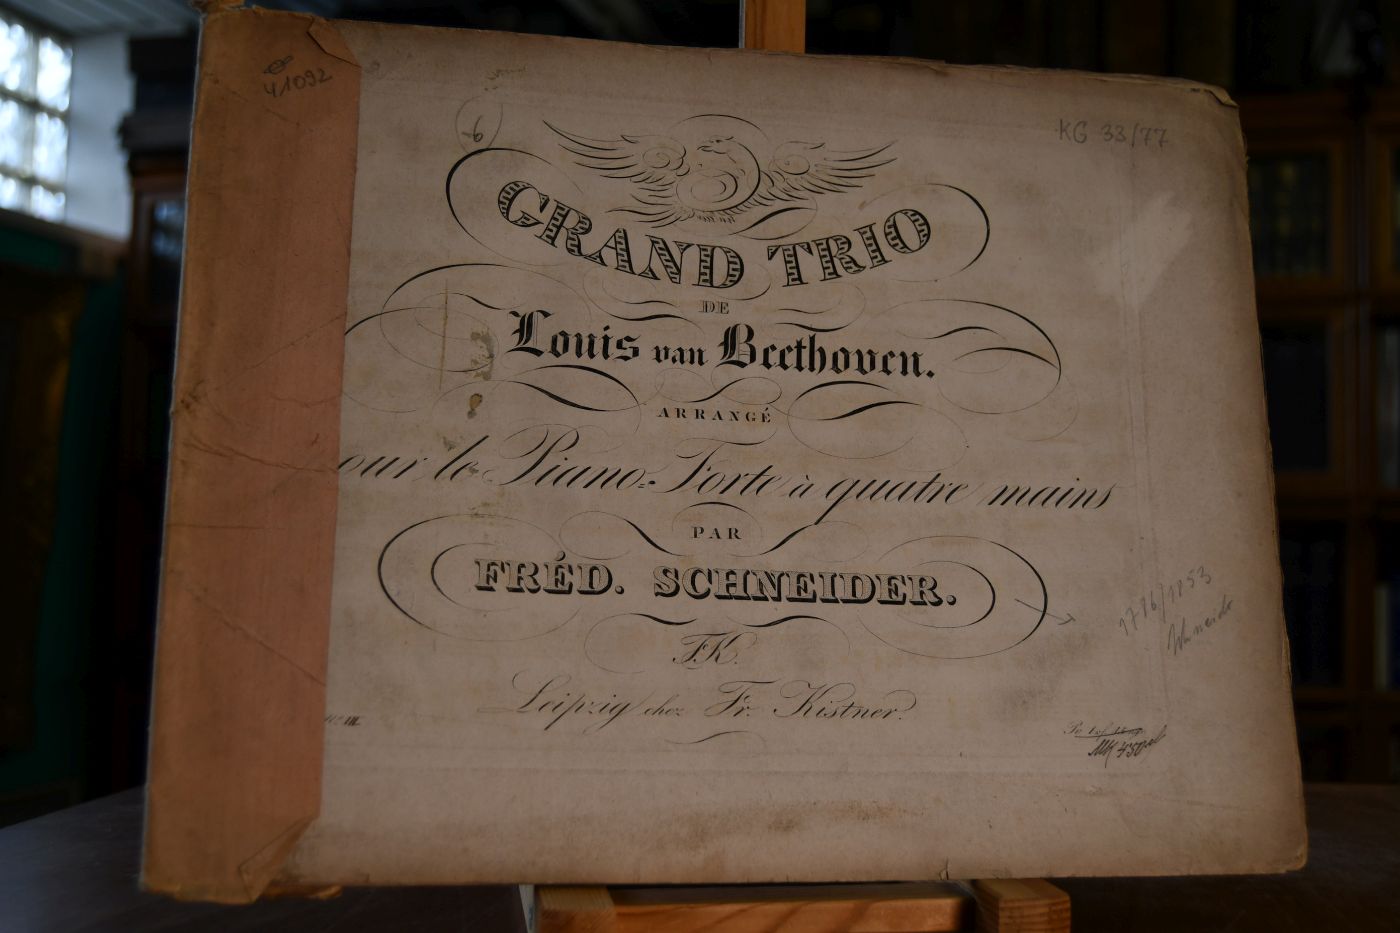 41092
6
KG 33/77
GRAND TRIO
DE
Louis van Beethoven.
ARRANGÉ
our le Piano=Forte à quatre mains
PAR
FRÉD. SCHNEIDER.
1786/1853
Schneider
FK.
Leipzig chez Fr. Kistner.
III.